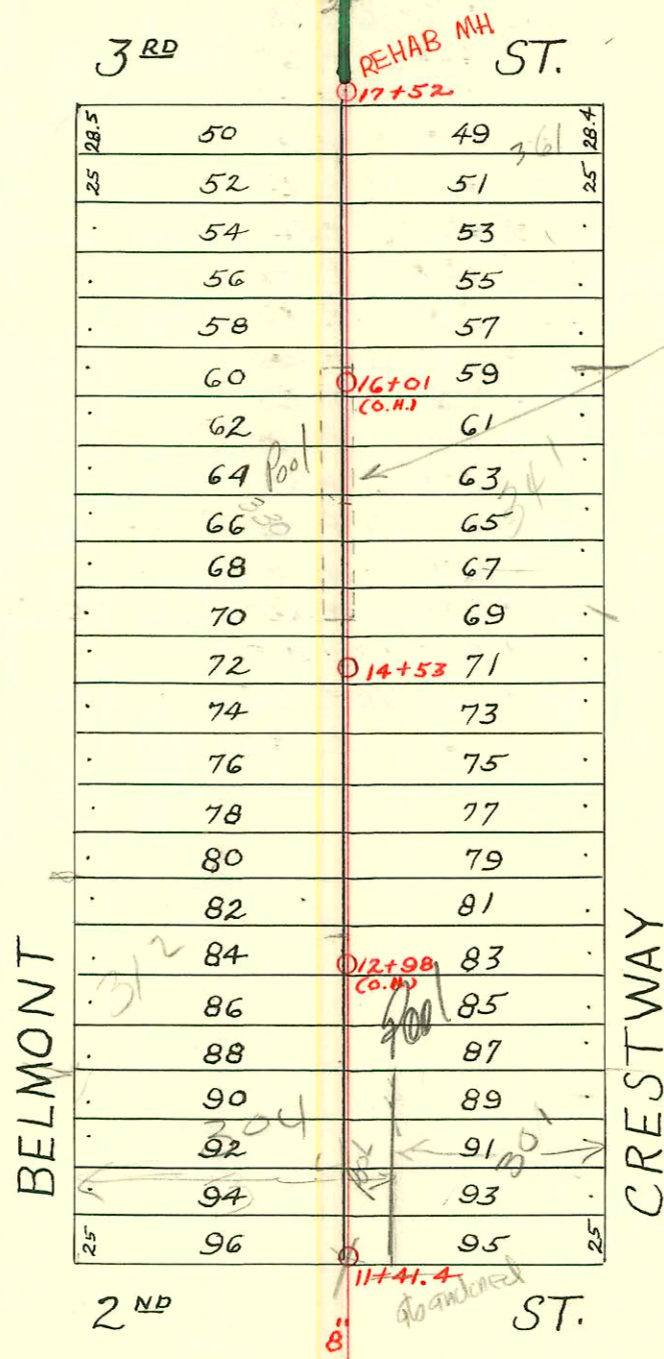 3RD ST.
REHAB MH
17+52
28.5 50 49 28.4
361
25 52 51 25
54 53
56 55
58 57
60 16+01 59
(O.H.)
62 61
Pool
64 63
341
330
66 65
68 67
70 69
72 14+53 71
74 73
76 75
78 77
80 79
82 81
84 12+98 83
(O.H.)
312
Pool
86 85
88 87
90 89
304
301
92 91
94 93
25 96 95 25
11+41.4
abandoned
2ND ST.
8"
BELMONT
CRESTWAY